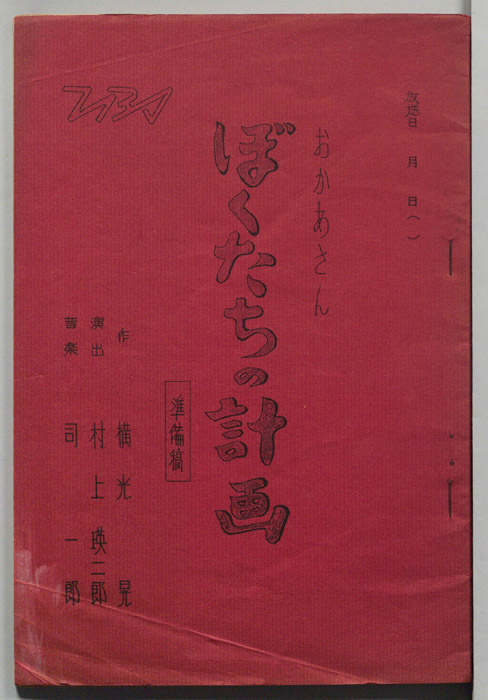 放送日 月 日( )
おかあさん
ぼくたちの計画
準備稿
作 横光 晃
演出 村上 瑛二郎
音楽 司 一郎
TBS